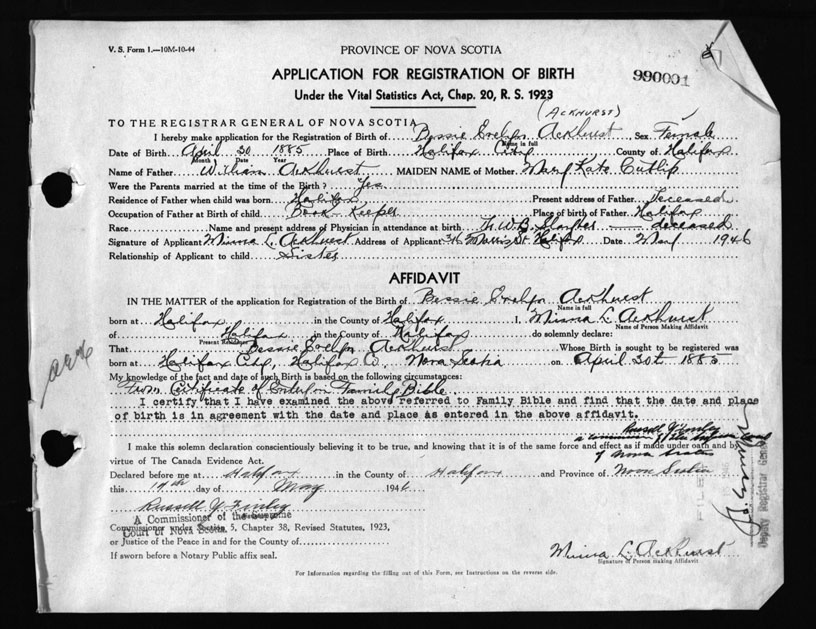 V. S. Form 1.—10M-10-44
PROVINCE OF NOVA SCOTIA
APPLICATION FOR REGISTRATION OF BIRTH
990001
Under the Vital Statistics Act, Chap. 20, R. S. 1923
(ACKHURST)
TO THE REGISTRAR GENERAL OF NOVA SCOTIA
I hereby make application for the Registration of Birth of Bessie Evelyn Ackhurst Sex Female
Name in full
Date of Birth April 30 1885 Place of Birth Halifax City County of Halifax
Month Date Year
Name of Father William Ackhurst MAIDEN NAME of Mother Mary Kate Cutlip
Were the Parents married at the time of the Birth? Yes
Residence of Father when child was born Halifax Present address of Father Deceased
Occupation of Father at Birth of child Book-Keeper Place of birth of Father Halifax
Race Name and present address of Physician in attendance at birth Dr. W. B. — deceased
Signature of Applicant Minna L. Ackhurst Address of Applicant 36 Morris St. Halifax Date May 1946
Relationship of Applicant to child Sister
AFFIDAVIT
IN THE MATTER of the application for Registration of the Birth of Bessie Evelyn Ackhurst
Name in full
born at Halifax in the County of Halifax I, Minna L. Ackhurst
Name of Person Making Affidavit
of Halifax in the County of Halifax do solemnly declare:
Present Residence
That Bessie Evelyn Ackhurst Whose Birth is sought to be registered was
born at Halifax City, Halifax Co, Nova Scotia on April 30t 1885
My knowledge of the fact and date of such Birth is based on the following circumstances:
From Certificate of Entry on Family Bible.
I certify that I have examined the above referred to Family Bible and find that the date and place
of birth is in agreement with the date and place as entered in the above affidavit.
Russell Y. Finley
a Commissioner of the Supreme Court
of Nova Scotia
I make this solemn declaration conscientiously believing it to be true, and knowing that it is of the same force and effect as if made under oath and by
virtue of The Canada Evidence Act.
Declared before me at Halifax in the County of Halifax and Province of Nova Scotia
this 17th day of May 1946
Russell Y. Finley
A Commissioner of the Supreme
Court of Nova Scotia
Commissioner under Section 5, Chapter 38, Revised Statutes, 1923,
or Justice of the Peace in and for the County of
If sworn before a Notary Public affix seal.
Minna L. Ackhurst
Signature of Person making Affidavit
For Information regarding the filling out of this Form, see Instructions on the reverse side.
Deputy Registrar General